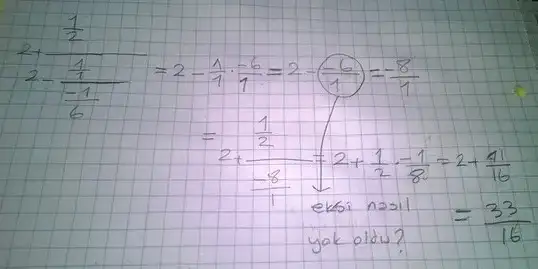 2 + (1/2) / (2 - (1/1) / (-1/6)) = 2 - 1/1 · -6/1 = 2 - -6/1 = -8/1
= 2 + (1/2) / (-8/1) = 2 + 1/2 · -1/8 = 2 + 41/16
eksi nasıl = 33/16
yok oldu?